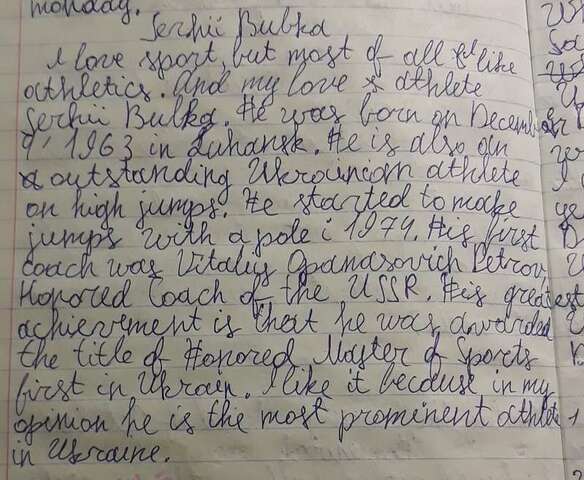 monday.
Serhii Bubka
I love sport, but most of all I like
athletics. And my love is athlete
Serhii Bubka. He was born on December
9, 1963 in Luhansk. He is also an
outstanding Ukrainian athlete
on high jumps. He started to make
jumps with a pole i 1974. His first
coach was Vitaliy Opanasovich Petrov,
Honored Coach of the USSR. His greatest
achievement is that he was awarded
the title of Honored Master of Sports
first in Ukrain. I like it because in my
opinion he is the most prominent athlete
in Ukraine.